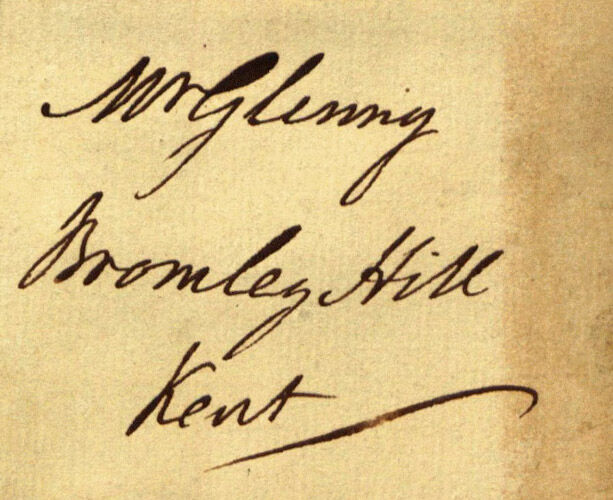 Mr Glenny
Bromley Hill
Kent